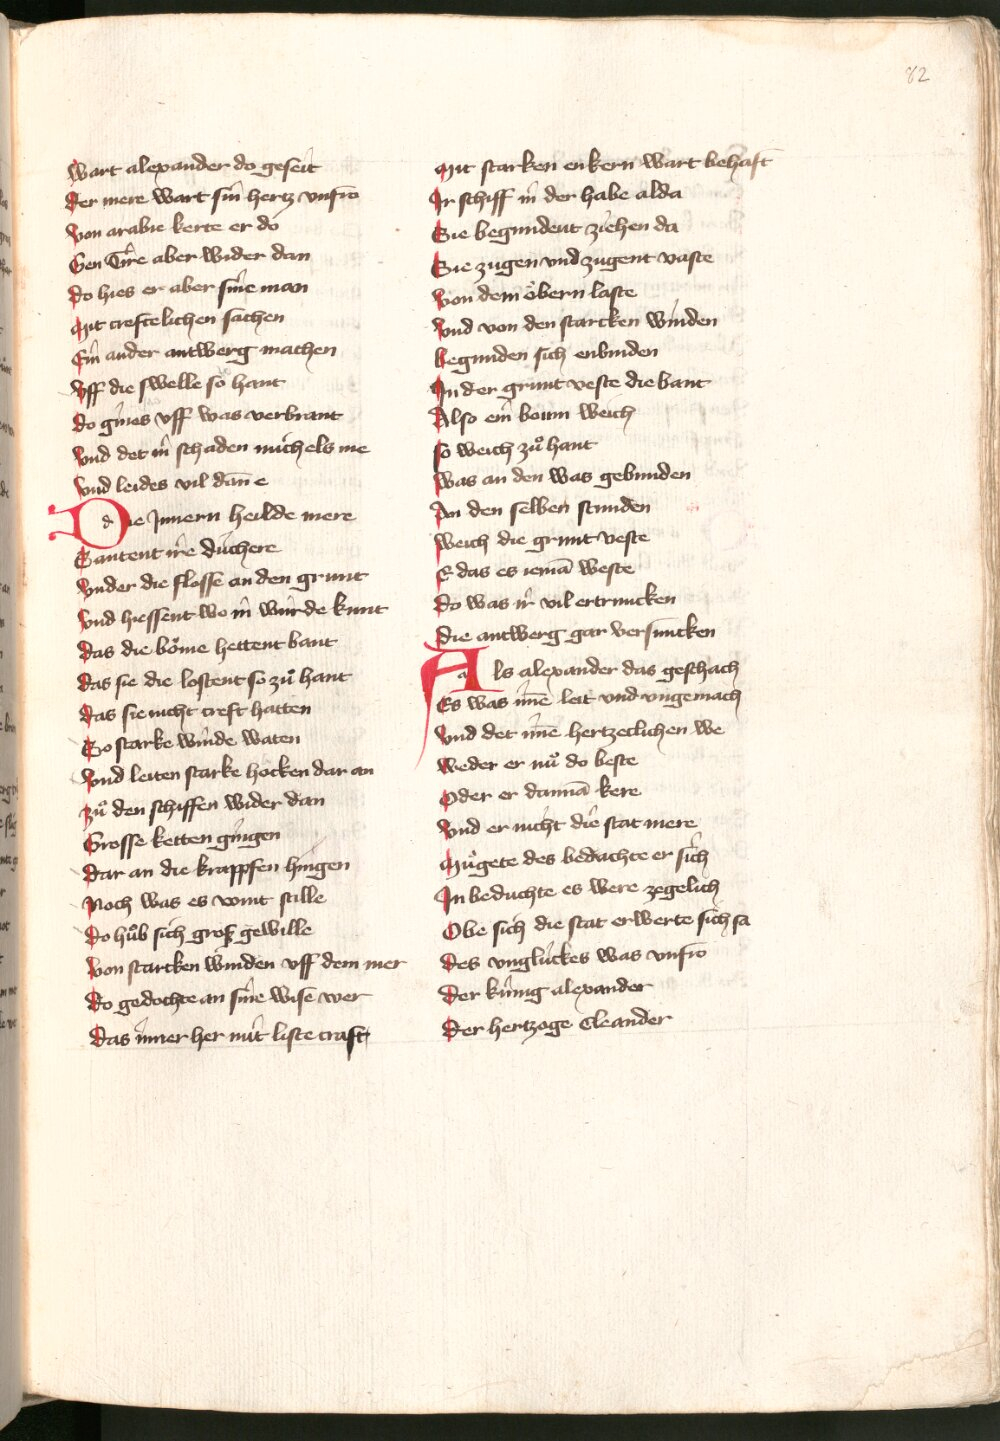 82
Wart alexander do geseit
Der mere wart sin hertz vnfro
Von arabie kerte er do
Gen Tire aber wider dan
Do hies er aber sine man
Mit creftelichen sachen
Ein ander antwerg machen
Vff die swelle so hant
Do gines vff was verbrant
Vnd det in schaden michels me
Vnd leides vil dann e
Die Innern heilde mere
Santent ire duchere
Vnder die flosse an den grunt
Vnd hiessent wo in wurde kunt
Das die bome hettent bant
Das sie die lostent so zů hant
Das sie nicht creft hatten
So starke winde waten
Vnd leiten starke hocken dar an
Zů den schiffen wider dan
Grosse ketten gingen
Dar an die krappfen hingen
Noch was es vomt stille
Do hůb sich groß gewille
Von starcken winden vff dem mer
Do gedochte an sine wise wer
Das inner her mit liste craft
Mit starken enkern wart behaft
Ir schiff in der habe alda
Sie begundent ziehen da
Sie zugen vnd zugent vaste
Von dem obern laste
Vnd von den starcken winden
Begunden sich enbinden
In der gruntveste die bant
Also ein boum weich
So weich zů hant
Was an den was gebunden
An den selben stunden
Weich die gruntveste
E das es ieman weste
Do was ir vil ertruncken
Die antwerg gar versuncken
Als alexander das geschach
Es was ime leit vnd vngemach
Vnd det ime hertzeclichen we
Weder er nů do beste
Oder er dannan kere
Vnd er nicht die stat mere
Můgete des bedachte er sich
In beduchte es were zegelich
Obe sich die stat erwerte sich sa
Des vngluckes was vnfro
Der kunig alexander
Der hertzoge Cleander